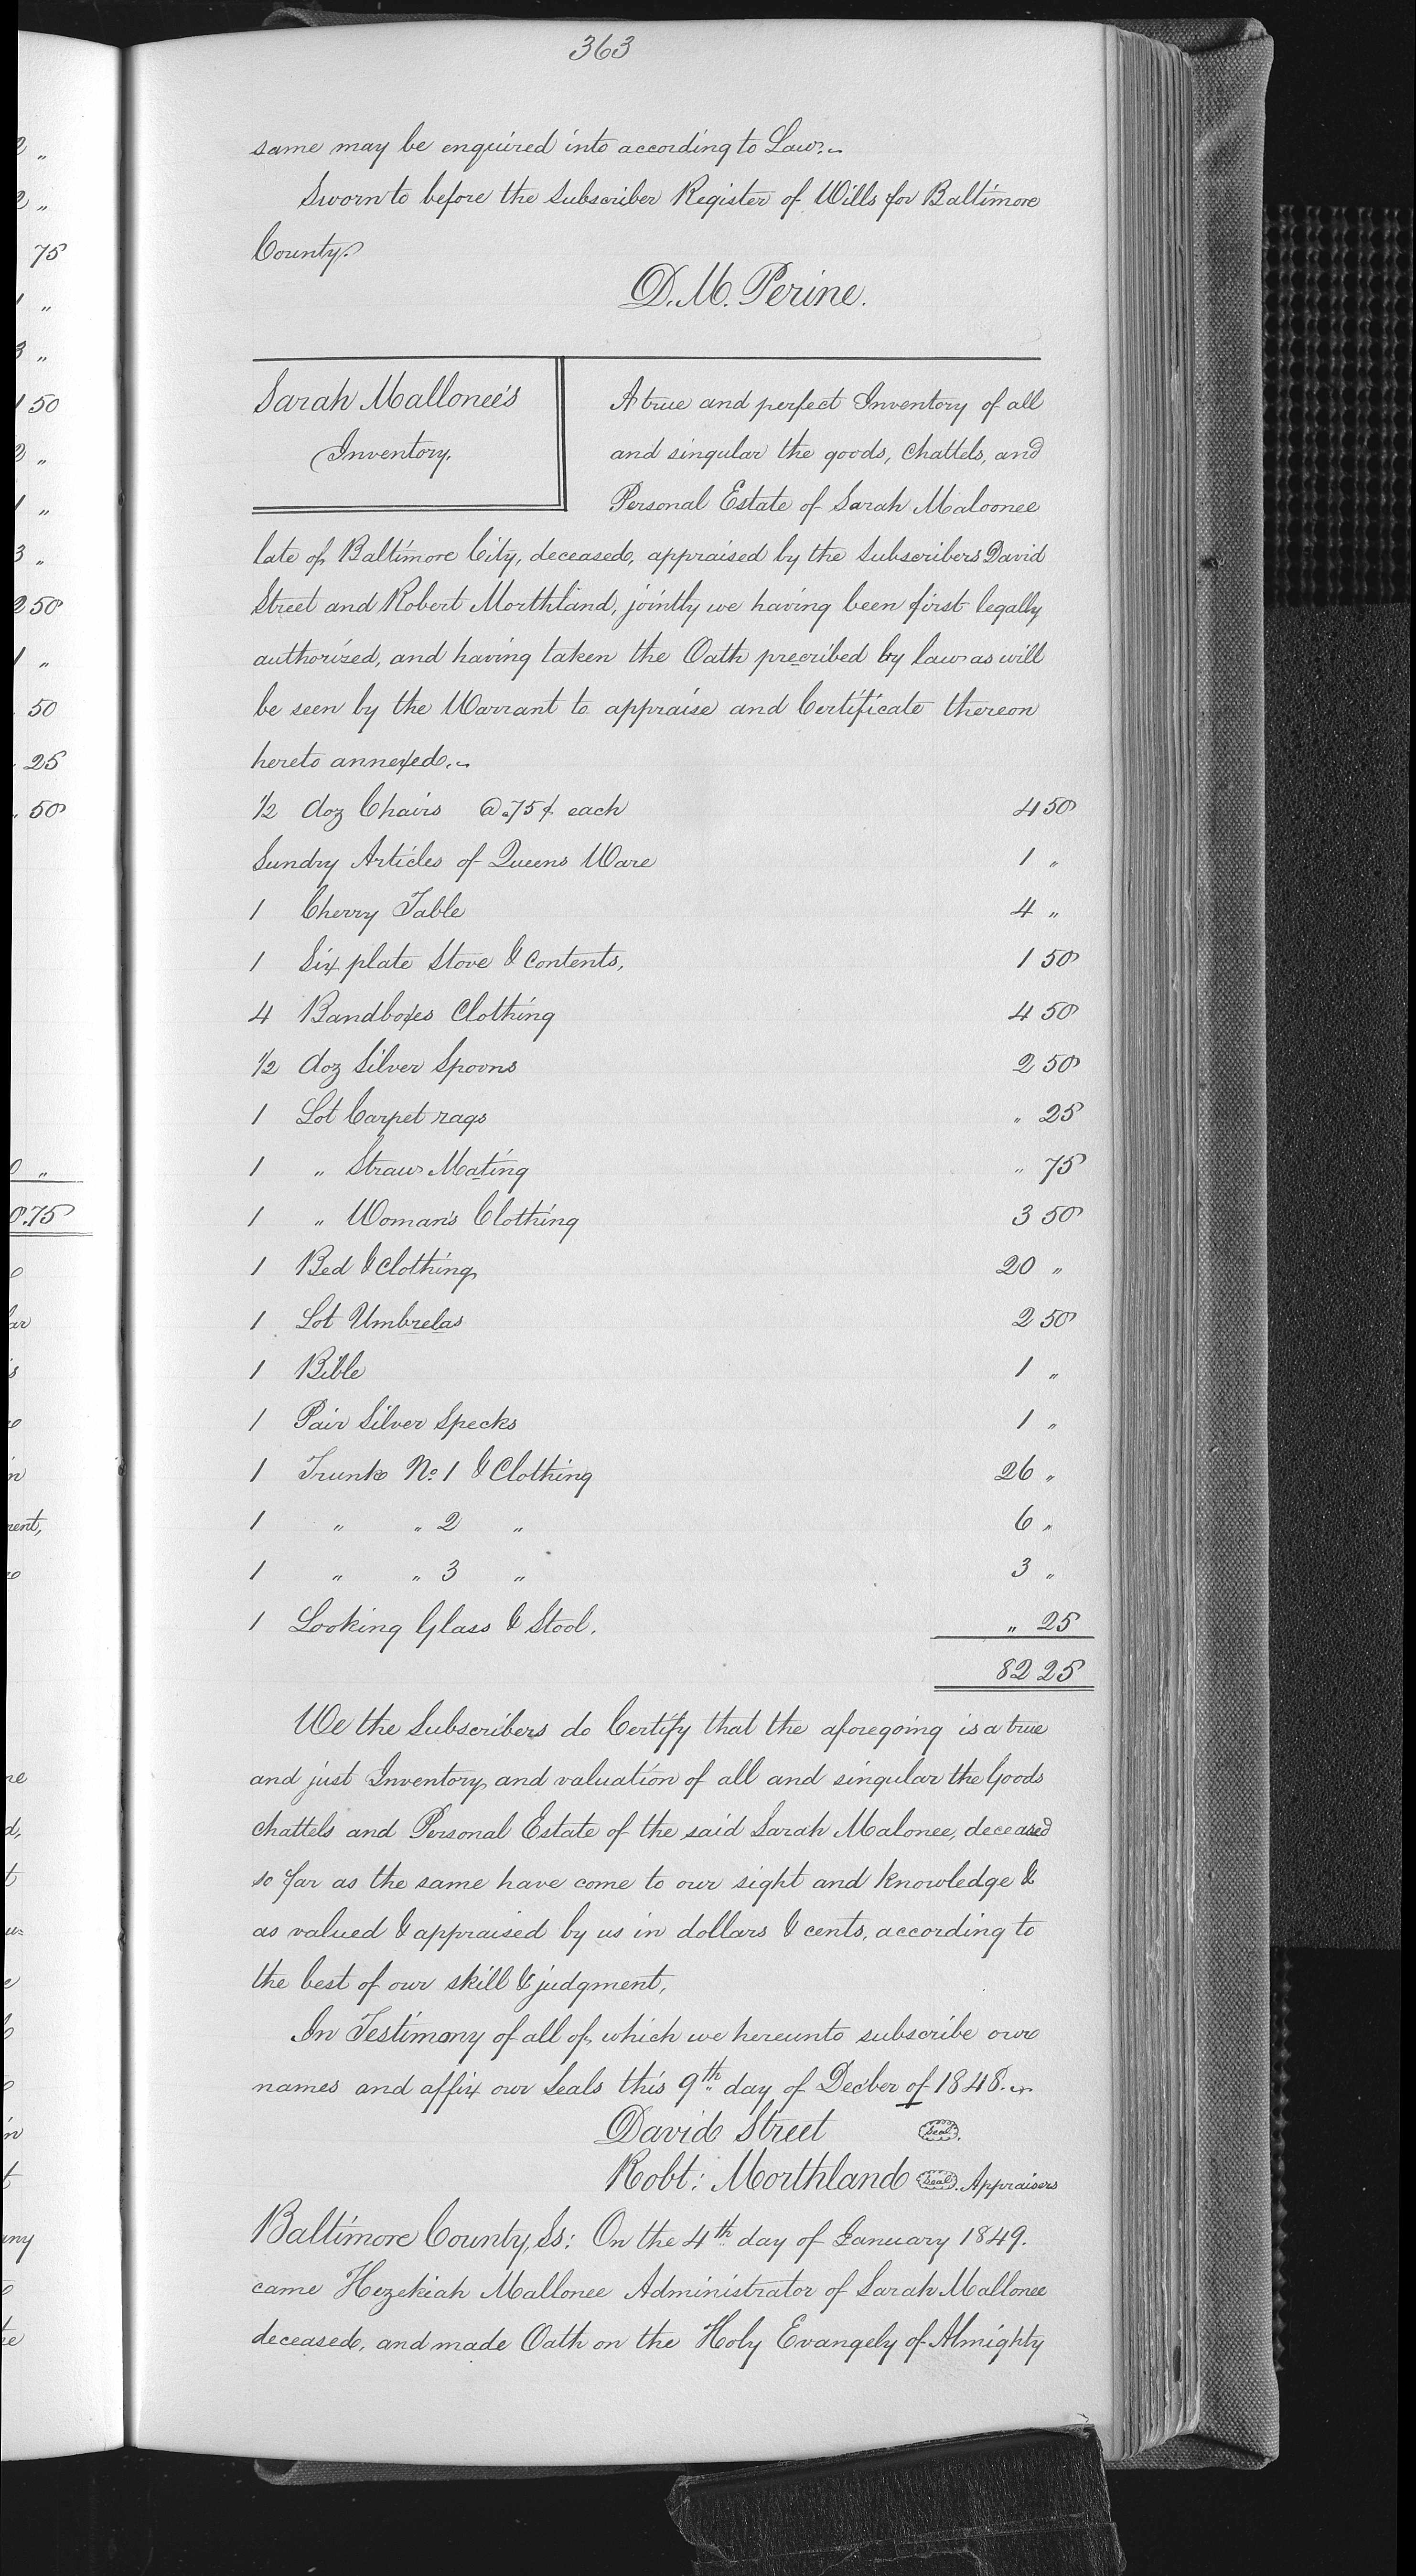 363
same may be enquired into according to Law.~
Sworn to before the Subscriber Register of Wills for Baltimore
County.
D. M. Perine.
Sarah Mallonee's
Inventory.
A true and perfect Inventory of all
and singular the goods, Chattels, and
Personal Estate of Sarah Maloonee
late of Baltimore City, deceased, appraised by the Subscribers David
Street and Robert Morthland, jointly we having been first legally
authorized, and having taken the Oath precribed by law as will
be seen by the Warrant to appraise and Certificate thereon
hereto annexed.~
1/2 doz Chairs @.75¢ each 4 50
Sundry Articles of Queens Ware 1 "
1 Cherry Table 4 "
1 Six plate Stove & Contents, 1 50
4 Bandboxes Clothing 4 50
1/2 doz Silver Spoons 2 50
1 Lot Carpet rags " 25
1 " Straw Mating " 75
1 " Woman's Clothing 3 50
1 Bed & Clothing 20 "
1 Lot Umbrelas 2 50
1 Bible 1 "
1 Pair Silver Specks 1 "
1 Trunk No. 1 & Clothing 26 "
1 " " 2 " 6 "
1 " " 3 " 3 "
1 Looking Glass & Stool. " 25
82 25
We the Subscribers do Certify that the aforegoing is a true
and just Inventory and valuation of all and singular the Goods
chattels and Personal Estate of the said Sarah Malonee, deceased
so far as the same have come to our sight and knowledge &
as valued & appraised by us in dollars & cents, according to
the best of our skill & judgment,
In Testimony of all of which we hereunto subscribe our
names and affix our Seals this 9th day of Decber of 1848.~
David Street Seal.
Robt: Morthland Seal. Appraisers
Baltimore County, Ss: On the 4th day of January 1849.
came Hezekiah Mallonee Administrator of Sarah Mallonee
deceased, and made Oath on the Holy Evangely of Almighty